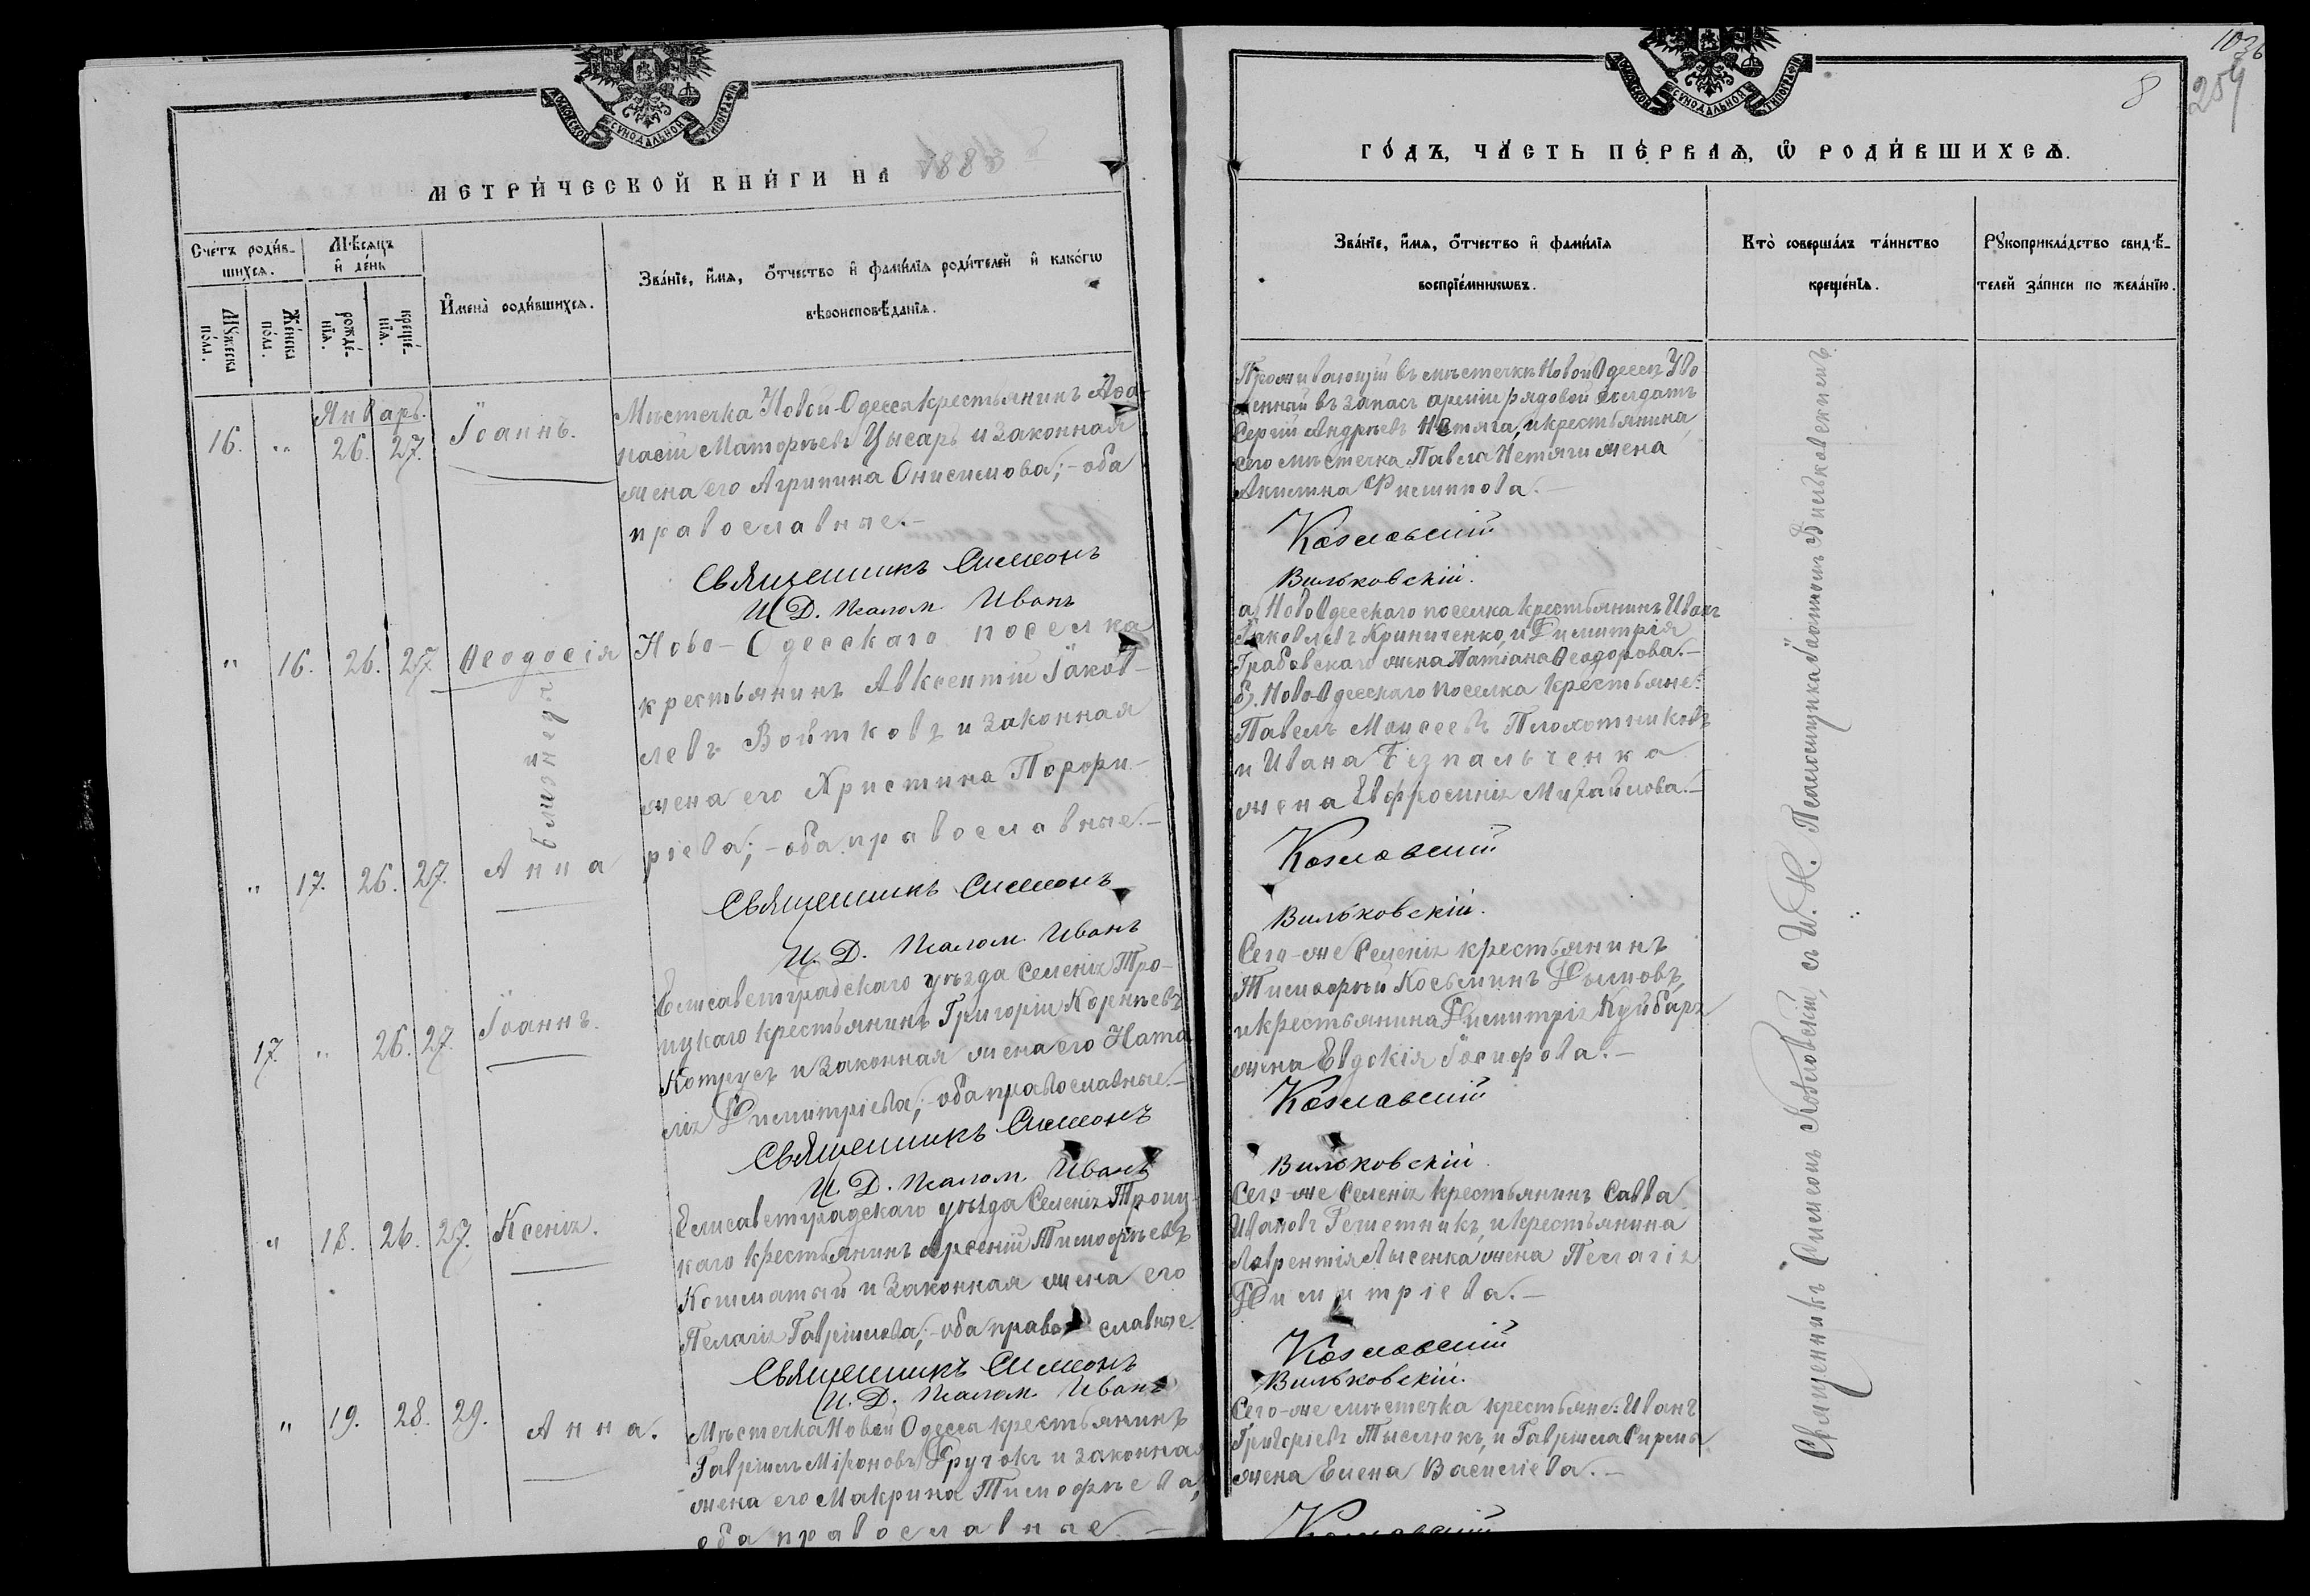 МОСКОВСКОЙ СУНОДАЛЬНОЙ ТИПОГРАФІИ
МЕТРИ́ЧЕСКОЙ КНИ́ГИ НА 1883
Счетъ роди́в-
шихся.
Мѣсяцъ
и де́нь
Мужеска
по́ла.
Же́нска
по́ла.
рожде́-
нїя.
креще́-
нїя.
Имена̀ роди́вшихся.
Зва́нїе, и́мя, ѻ҆́тчество и҆ фами́лїя роди́телей и҆ како́гѡ
вѣроисповѣ́данїя.
Январь.
16. " 26. 27. Іоаннъ.
Мѣстечка Новой-Одесса крестьянинъ Аѳа-
насій Матѳѣевъ Цысарь и законная
жена его Агрипина Онисимова; - оба
православные.-
Священникъ Симеонъ
И. Д. Псалом. Иванъ
" 16. 26. 27. Ѳеодосія
близнецы
" 17. 26. 27. Анна
Ново-Одесскаго поселка
крестьянинъ Авксентій Іаков-
левъ Войтковъ и законная
жена его Христина Порфи-
ріева; - оба православные.-
Священникъ Симеонъ
И. Д. Псалом. Иванъ
17. " 26. 27. Іоаннъ.
Елисаветградскаго уѣзда Селенія Тро-
ицкаго крестьянинъ Григорій Корнѣевъ
Котрусъ и законная жена его Ната
лія Димитріева; - оба православные.-
Священникъ Симеонъ
И. Д. Псалом. Иванъ
" 18. 26. 27. Ксенія.
Елисаветградскаго уѣзда Селенія Троиц-
каго крестьянинъ Арсеній Тимоѳѣевъ
Кошматый и законная жена его
Пелагія Гавріилова; - оба православные.
Священникъ Симеонъ
И. Д. Псалом. Иванъ
" 19. 28. 29. Анна.
Мѣстечка Новой Одесса крестьянинъ
Гавріилъ Міроновъ Дручокъ и законная
жена его Макрина Тимофѣева;
оба православные. -
1036
8
259
МОСКОВСКОЙ СУНОДАЛЬНОЙ ТИПОГРАФІИ
ГО́ДЪ, ЧА́СТЬ ПЕ́РВАЯ, Ѡ҆ РОДИ́ВШИХСЯ.
Зва́нїе, и́мя, ѻ҆́тчество и҆ фами́лїя
воспрїе́мникѡвъ.
Кто̀ соверша́лъ та́инство
креще́нїя.
Рꙋкоприкла́дство свидѣ́-
телей за́писи по жела́нїю.
Проживающій въ мѣстечкѣ Новой Одессѣ Уво
ленный въ запасъ арміи рядовой солдатъ
Сергій Андрѣевъ Нетяга, и крестьянина
сего мѣстечка Павла Нетяги жена
Акилина Филиппова.-
Козловскій
Вильковскій.
а) Ново Одесскаго поселка крестьянинъ Иванъ
Іаковлевъ Криниченко, и Димитрія
Грабовскаго жена Татіана Ѳеодорова.-
б). Ново-Одесскаго поселка крестьяне:
Павелъ Моисеевъ Плохотниковъ
и Ивана Безпальченка
жена Евфросинія Михайлова.-
Козловскій
Вильковскій.
Сего-же Селенія крестьянинъ
Тимоѳѣй Косьминъ Дымовъ,
и крестьянина Димитрія Куйбаръ
жена Евдокія Іосифова.-
Козловскій
Вильковскій.
Сего-же Селенія крестьянинъ Савва
Ивановъ Решетникъ, и крестьянина
Лаврентія Лысенка жена Пелагія
Димитріева.-
Козловскій
Вильковскій.
Сего-же мѣстечка крестьяне: Иванъ
Григоріевъ Тыслюкъ, и Гавріила
жена Елена Василіева.-
Козловскій
Священникъ Симеонъ Козловскій, съ И. Д. Псаломщика Іоанномъ Вильковскимъ.